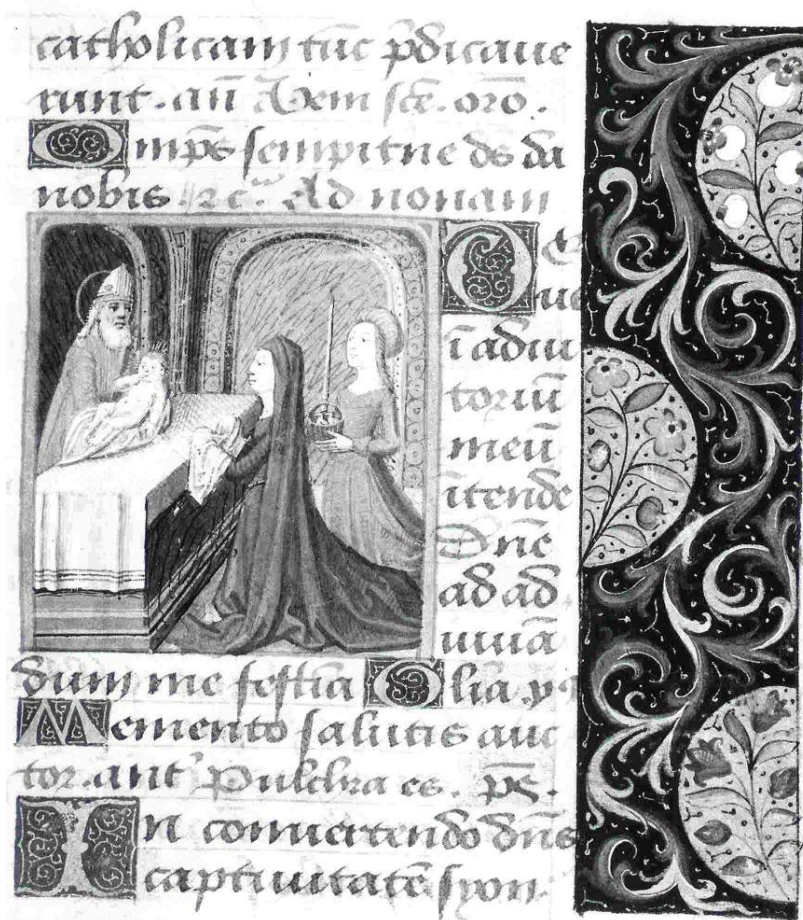 catholicam tūc p̄dicaue
runt. an̄ Veni sc̄e. or̄o.
Omp̄s sempitne ds̄ da
nobis ⁊c. Ad nonam
Deus
ī adiu
toriū
meū
ītende
Dn̄e
ad ad
iuuā
dum me festīa Gl̄ia.
Memento salutis auc
tor. ant̄ Pulchra es. ps̄.
In conuertendo dn̄s
captiuitatē syon